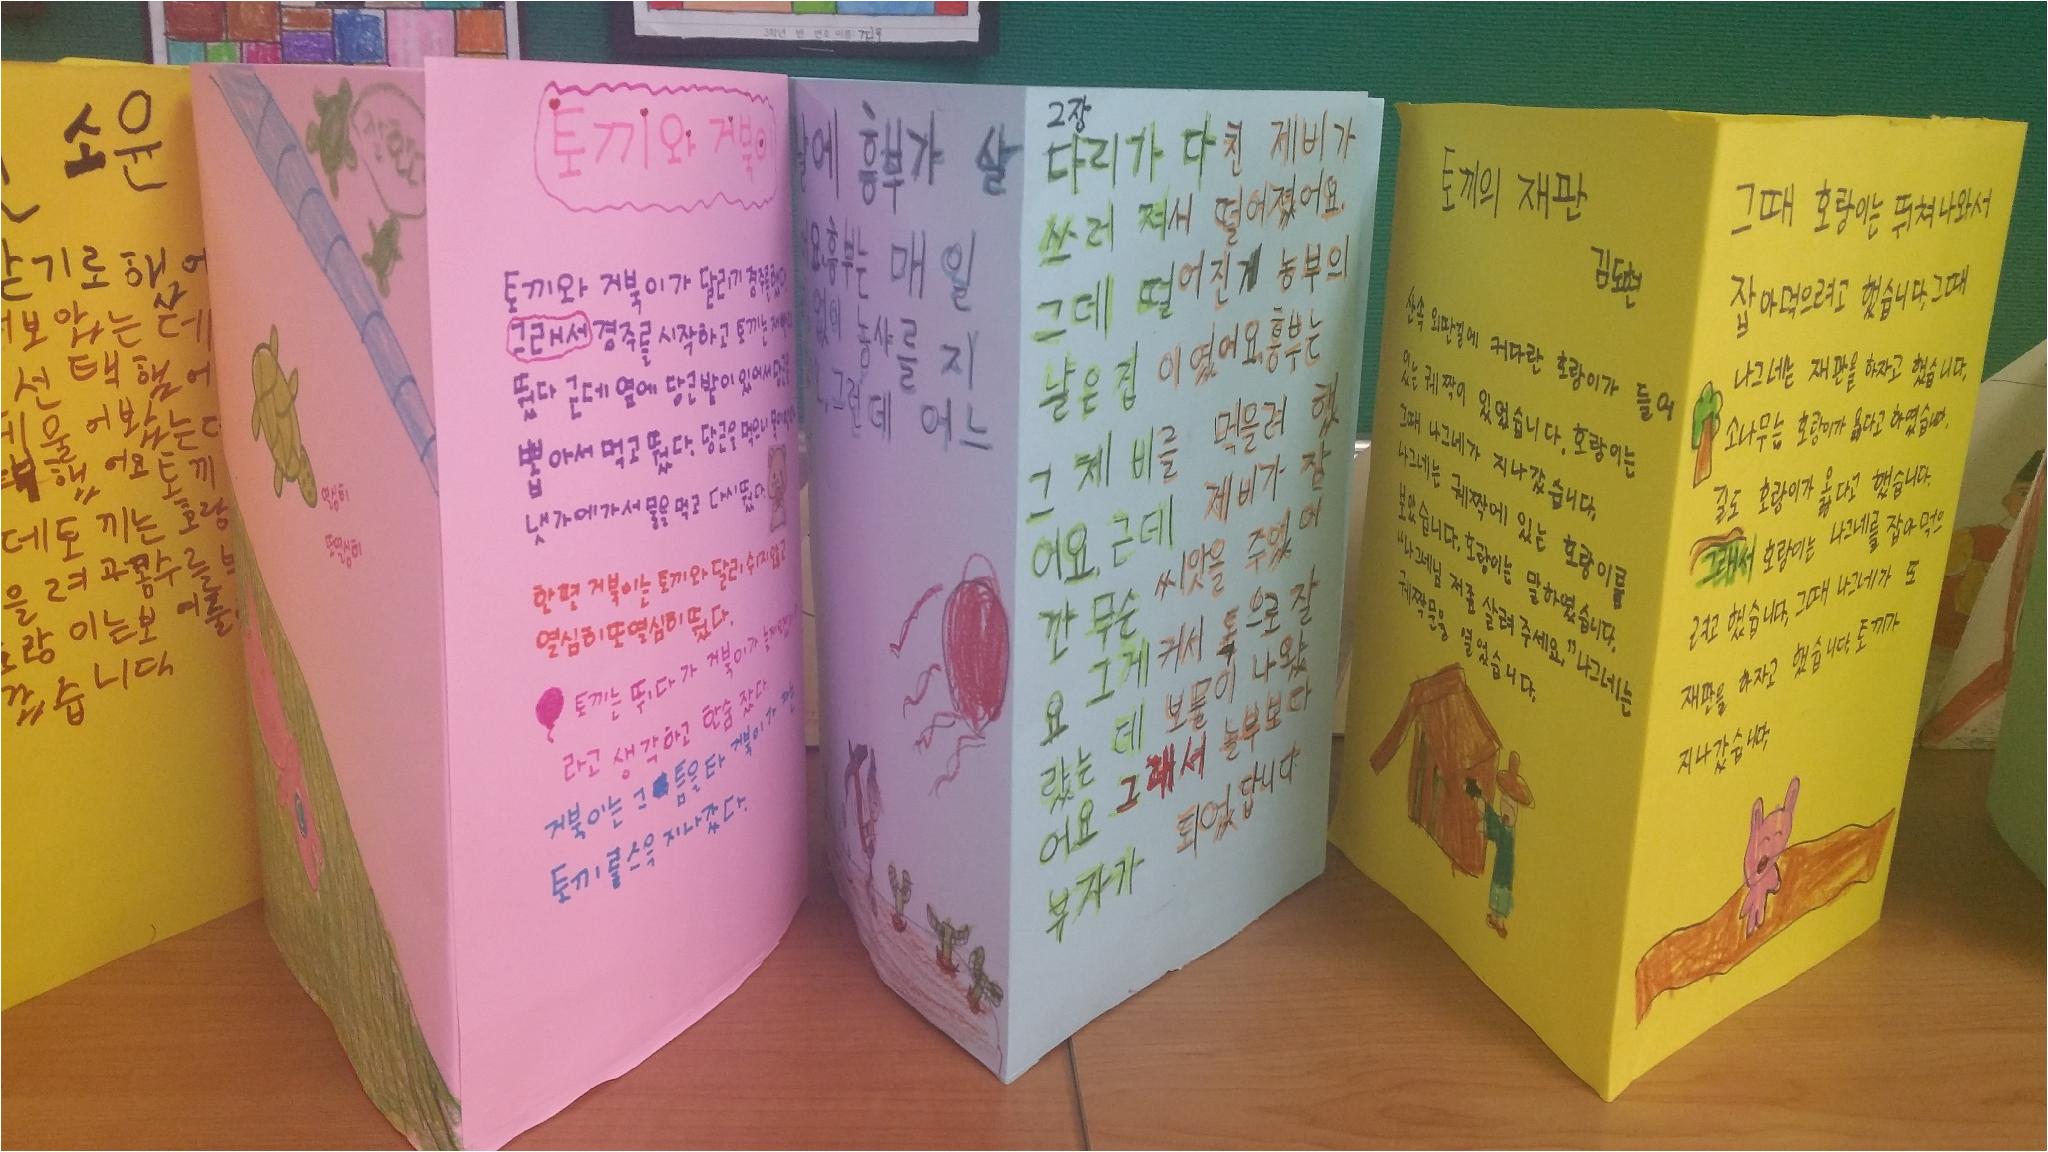 3학년 반 번호 이름
소윤
기로 했어
보았는데
선택했어
물어보았는데
했어요 토끼
데 토끼는 호랑
을려고 꼼수를
호랑이는 보
갔습니다
열심히
또열심히
토끼와 거북이
토끼와 거북이가 달리기 경주를
그래서 경주를 시작하고 토끼는
뛰었다 근데 옆에 당근밭이 있어서 당근을
뽑아서 먹고 뛰었다. 당근을 먹으니
냇가에가서 물을 먹고 다시 뛰었다.
한편 거북이는 토끼와 달리 쉬지않고
열심히 또 열심히 뛰었다.
토끼는 뛰다가 거북이가
라고 생각하고 한숨 잤다
거북이는 그 틈을 타 거북이가
토끼를 스윽 지나갔다.
날에 흥부가 살
흥부는 매일
없이 농사를 지
그런데 어느
2장
다리가 다친 제비가
쓰러져서 떨어졌어요.
그데 떨어진게 농부의
낡은집이였어요.흥부는
그 체비를 먹을려 했
어요. 근데 제비가 잠
깐 무슨 씨앗을 주었어
요 그게 커서 통으로 잘
랐는데 보물이 나왔
어요 그래서 놀부보다
부자가 되었답니다
토끼의 재판
김도현
산속 외딴길에 커다란 호랑이가 들어
있는 궤짝이 있었습니다. 호랑이는
그때 나그네가 지나갔습니다.
나그네는 궤짝에 있는 호랑이를
보았습니다. 호랑이는 말하였습니다.
"나그네님 저좀 살려주세요." 나그네는
궤짝문을 열었습니다.
그때 호랑이는 뛰쳐나와서
잡아먹으려고 했습니다. 그때
나그네는 재판을 하자고 했습니다.
소나무는 호랑이가 옳다고 하였습니다.
길도 호랑이가 옳다고 했습니다.
그래서 호랑이는 나그네를 잡아 먹으
려고 했습니다. 그때 나그네가 또
재판을 하자고 했습니다. 토끼가
지나갔습니다.